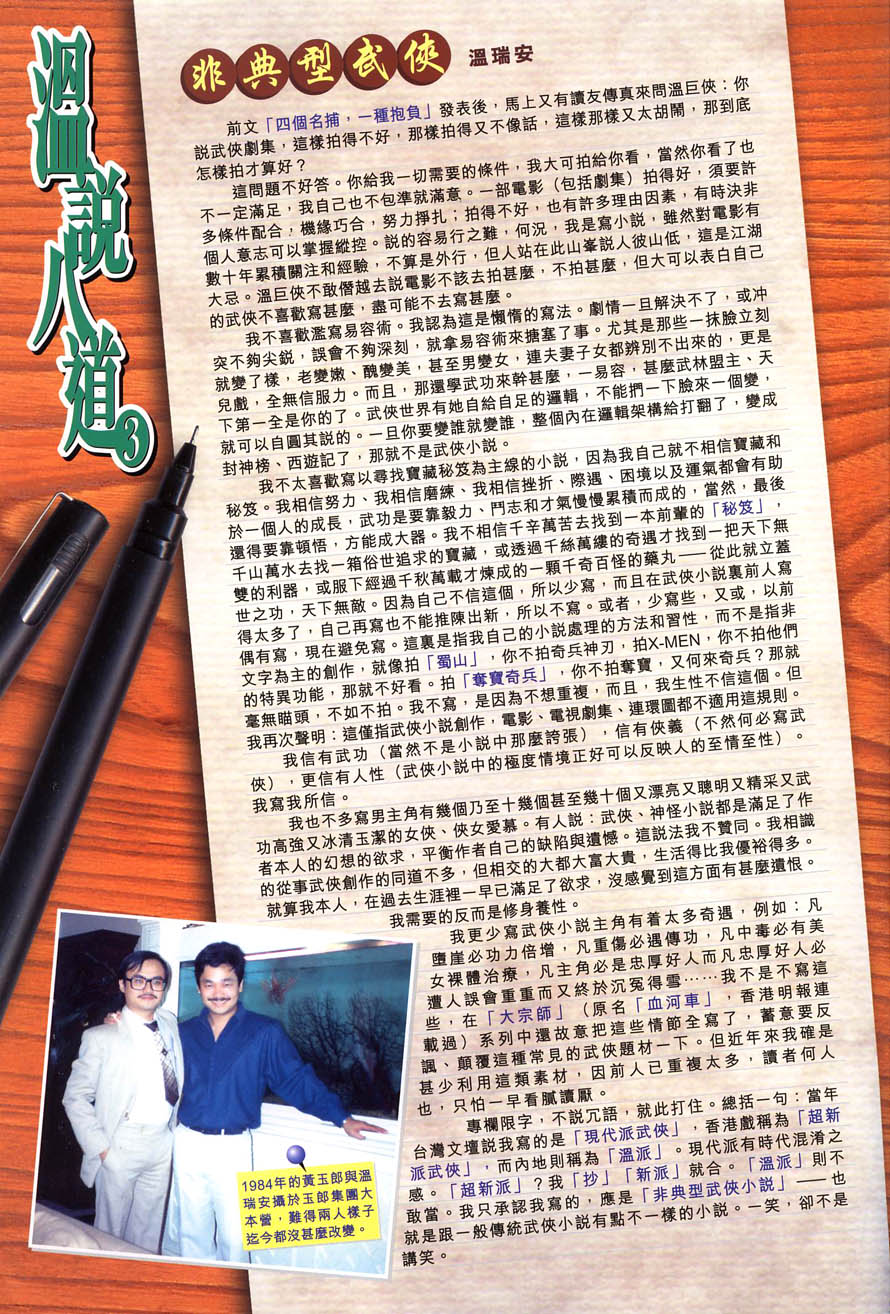 溫說八道3
非典型武俠
溫瑞安
前文「四個名捕，一種抱負」發表後，馬上又有讀友傳真來問溫巨俠：你
說武俠劇集，這樣拍得不好，那樣拍得又不像話，這樣那樣又太胡鬧，那到底
怎樣拍才算好？
這問題不好答。你給我一切需要的條件，我大可拍給你看，當然你看了也
不一定滿足，我自己也不包準就滿意。一部電影（包括劇集）拍得好，須要許
多條件配合，機緣巧合，努力掙扎；拍得不好，也有許多理由因素，有時決非
個人意志可以掌握縱控。說的容易行之難，何況，我是寫小說，雖然對電影有
數十年累積關注和經驗，不算是外行，但人站在此山峯說人彼山低，這是江湖
大忌。溫巨俠不敢僭越去說電影不該去拍甚麼，不拍甚麼，但大可以表白自己
的武俠不喜歡寫甚麼，盡可能不去寫甚麼。
我不喜歡濫寫易容術。我認為這是懶惰的寫法。劇情一旦解決不了，或冲
突不夠尖鋭，誤會不夠深刻，就拿易容術來搪塞了事。尤其是那些一抹臉立刻
就變了樣，老變嫩、醜變美，甚至男變女，連夫妻子女都辨別不出來的，更是
兒戲，全無信服力。而且，那還學武功來幹甚麼，一易容，甚麼武林盟主、天
下第一全是你的了。武俠世界有她自給自足的邏輯，不能捫一下臉來一個變，
就可以自圓其說的。一旦你要變誰就變誰，整個內在邏輯架構給打翻了，變成
封神榜、西遊記了，那就不是武俠小說。
我不太喜歡寫以尋找寶藏秘笈為主線的小說，因為我自己就不相信寶藏和
秘笈。我相信努力、我相信磨練、我相信挫折、際遇、困境以及運氣都會有助
於一個人的成長，武功是要靠毅力、鬥志和才氣慢慢累積而成的，當然，最後
還得要靠頓悟，方能成大器。我不相信千辛萬苦去找到一本前輩的「秘笈」，
千山萬水去找一箱俗世追求的寶藏，或透過千絲萬縷的奇遇才找到一把天下無
雙的利器，或服下經過千秋萬載才煉成的一顆千奇百怪的藥丸——從此就立蓋
世之功，天下無敵。因為自己不信這個，所以少寫，而且在武俠小說裏前人寫
得太多了，自己再寫也不能推陳出新，所以不寫。或者，少寫些，又或，以前
偶有寫，現在避免寫。這裏是指我自己的小說處理的方法和習性，而不是指非
文字為主的創作，就像拍「蜀山」，你不拍奇兵神刃，拍X-MEN，你不拍他們
的特異功能，那就不好看。拍「奪寶奇兵」，你不拍奪寶，又何來奇兵？那就
毫無瞄頭，不如不拍。我不寫，是因為不想重複，而且，我生性不信這個。但
我再次聲明：這僅指武俠小說創作，電影、電視劇集、連環圖都不適用這規則。
我信有武功（當然不是小說中那麼誇張），信有俠義（不然何必寫武
俠），更信有人性（武俠小說中的極度情境正好可以反映人的至情至性）。
我寫我所信。
我也不多寫男主角有幾個乃至十幾個甚至幾十個又漂亮又聰明又精采又武
功高強又冰清玉潔的女俠、俠女愛慕。有人說：武俠、神怪小說都是滿足了作
者本人的幻想的欲求，平衡作者自己的缺陷與遺憾。這說法我不贊同。我相識
的從事武俠創作的同道不多，但相交的大都大富大貴，生活得比我優裕得多。
就算我本人，在過去生涯裡一早已滿足了欲求，沒感覺到這方面有甚麼遺恨。
我需要的反而是修身養性。
我更少寫武俠小說主角有着太多奇遇，例如：凡
墮崖必功力倍增，凡重傷必遇傳功，凡中毒必有美
女裸體治療，凡主角必是忠厚好人而凡忠厚好人必
遭人誤會重重而又終於沉冤得雪……我不是不寫這
些，在「大宗師」（原名「血河車」，香港明報連
載過）系列中還故意把這些情節全寫了，蓄意要反
諷、顛覆這種常見的武俠題材一下。但近年來我確是
甚少利用這類素材，因前人已重複太多，讀者何人
也，只怕一早看膩讀厭。
專欄限字，不說冗語，就此打住。總括一句：當年
台灣文壇說我寫的是「現代派武俠」，香港戲稱為「超新
派武俠」，而內地則稱為「溫派」。現代派有時代混淆之
感。「超新派」？我「抄」「新派」就合。「溫派」則不
敢當。我只承認我寫的，應是「非典型武俠小說」——也
就是跟一般傳統武俠小說有點不一樣的小說。一笑，卻不是
講笑。
1984年的黃玉郎與溫
瑞安攝於玉郎集團大
本營，難得兩人樣子
迄今都沒甚麼改變。